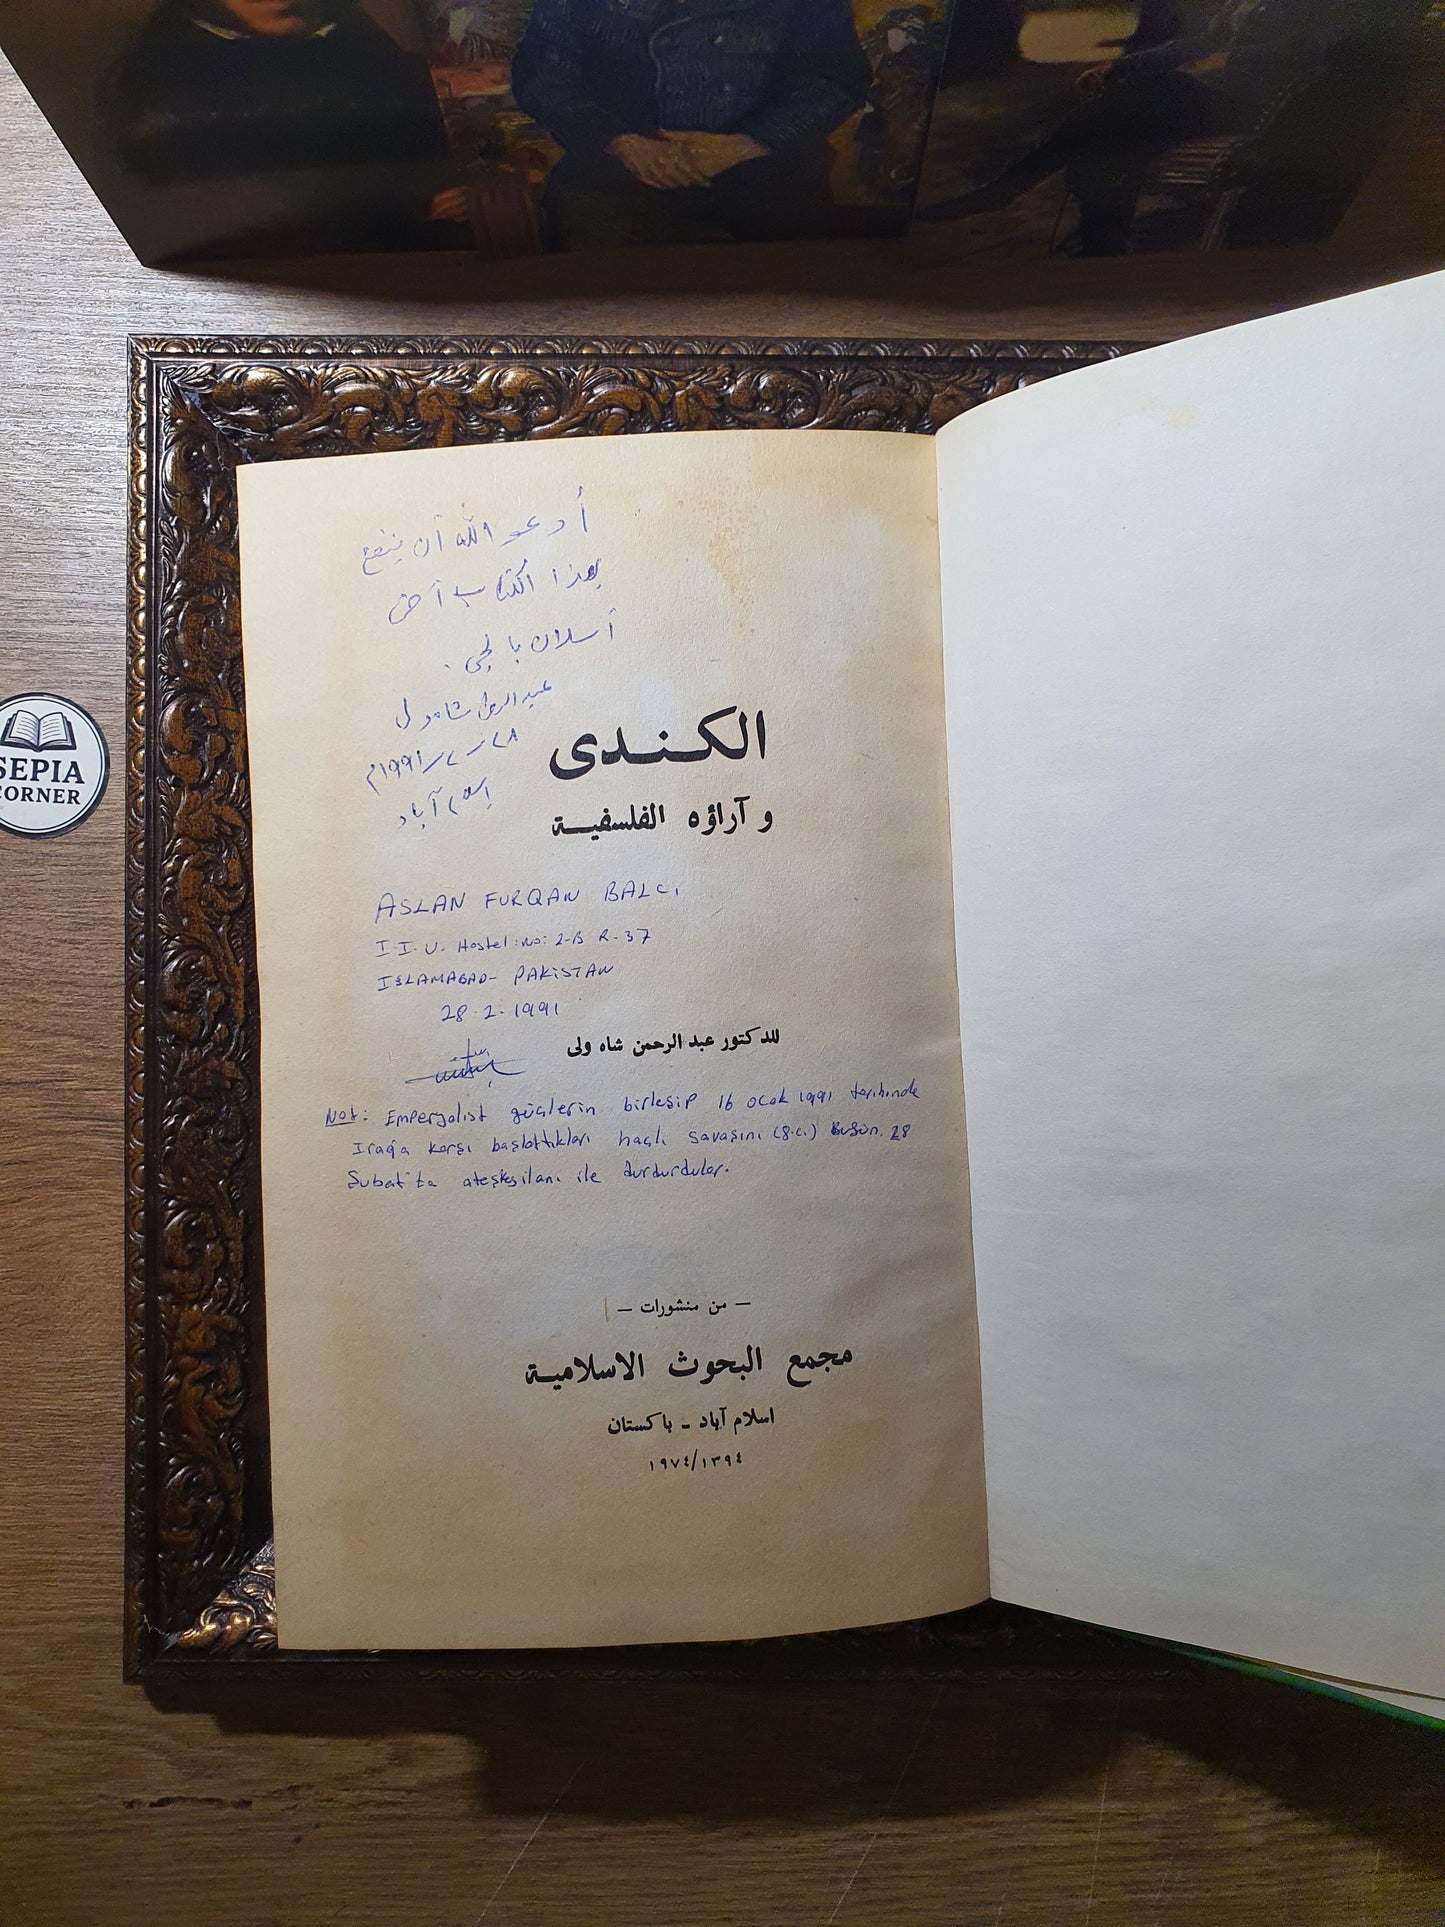 أدعو الله أن ينفع
بهذا الكتاب أخي
أسلان بالجي.
عبد الرحمن شاه ولي
٢٨/٢/١٩٩١م
إسلام آباد
الكندى
و آراؤه الفلسفية
ASLAN FURQAN BALCI
I.I.U. Hostel: No: 2-B R-37
ISLAMABAD - PAKiSTAN
28.2.1991
للدكتور عبد الرحمن شاه ولى
Not: Emperyalist güçlerin birleşip 16 ocak 1991 tarihinde
Iraq'a karşı başlattıkları haçlı savaşını (8.c.) Bugün, 28
Şubat'ta ateşkes ilanı ile durdurdular.
— من منشورات —
مجمع البحوث الاسلامية
اسلام آباد - باكستان
١٩٧٤/١٣٩٤
SEPIA
CORNER